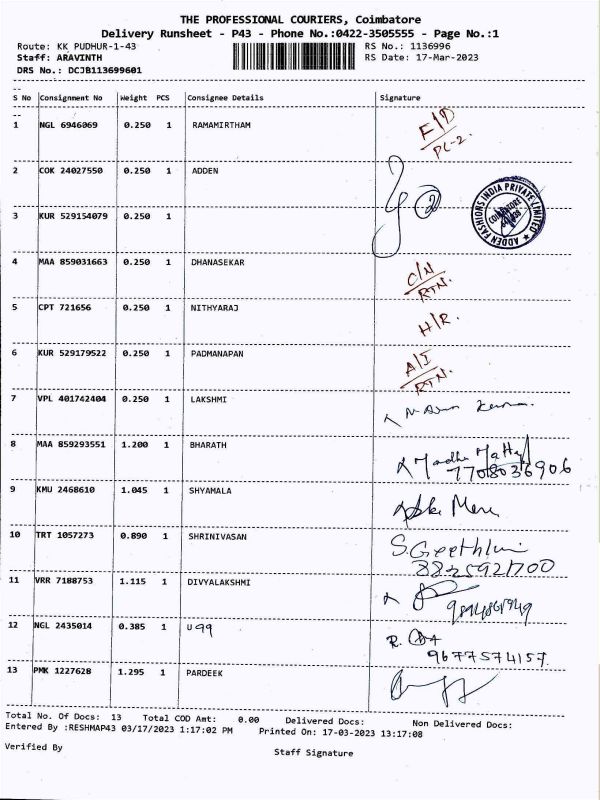 THE PROFESSIONAL COURIERS, Coimbatore
Delivery Runsheet - P43 - Phone No.:0422-3505555 - Page No.:1
Route: KK PUDHUR-1-43 RS No.: 1136996
Staff: ARAVINTH RS Date: 17-Mar-2023
DRS No.: DCJB113699601
S No Consignment No Weight PCS Consignee Details Signature
1 NGL 6946069 0.250 1 RAMAMIRTHAM F/D
PC-2.
2 COK 24027550 0.250 1 ADDEN 2
ADDEN FASHIONS INDIA PRIVATE LIMITED
COIMBATORE
3 KUR 529154079 0.250 1
4 MAA 859031663 0.250 1 DHANASEKAR C/N
RTN.
5 CPT 721656 0.250 1 NITHYARAJ H/R.
6 KUR 529179522 0.250 1 PADMANAPAN A/I
RTN.
7 VPL 401742404 0.250 1 LAKSHMI
8 MAA 859293551 1.200 1 BHARATH
7708036906
9 KMU 2468610 1.045 1 SHYAMALA
10 TRT 1057273 0.890 1 SHRINIVASAN S.Geethlmi
8825921700
11 VRR 7188753 1.115 1 DIVYALAKSHMI
12 NGL 2435014 0.385 1 U99 R.
9677574157
13 PMK 1227628 1.295 1 PARDEEK
Total No. Of Docs: 13 Total COD Amt: 0.00 Delivered Docs: Non Delivered Docs:
Entered By :RESHMAP43 03/17/2023 1:17:02 PM Printed On: 17-03-2023 13:17:08
Verified By Staff Signature